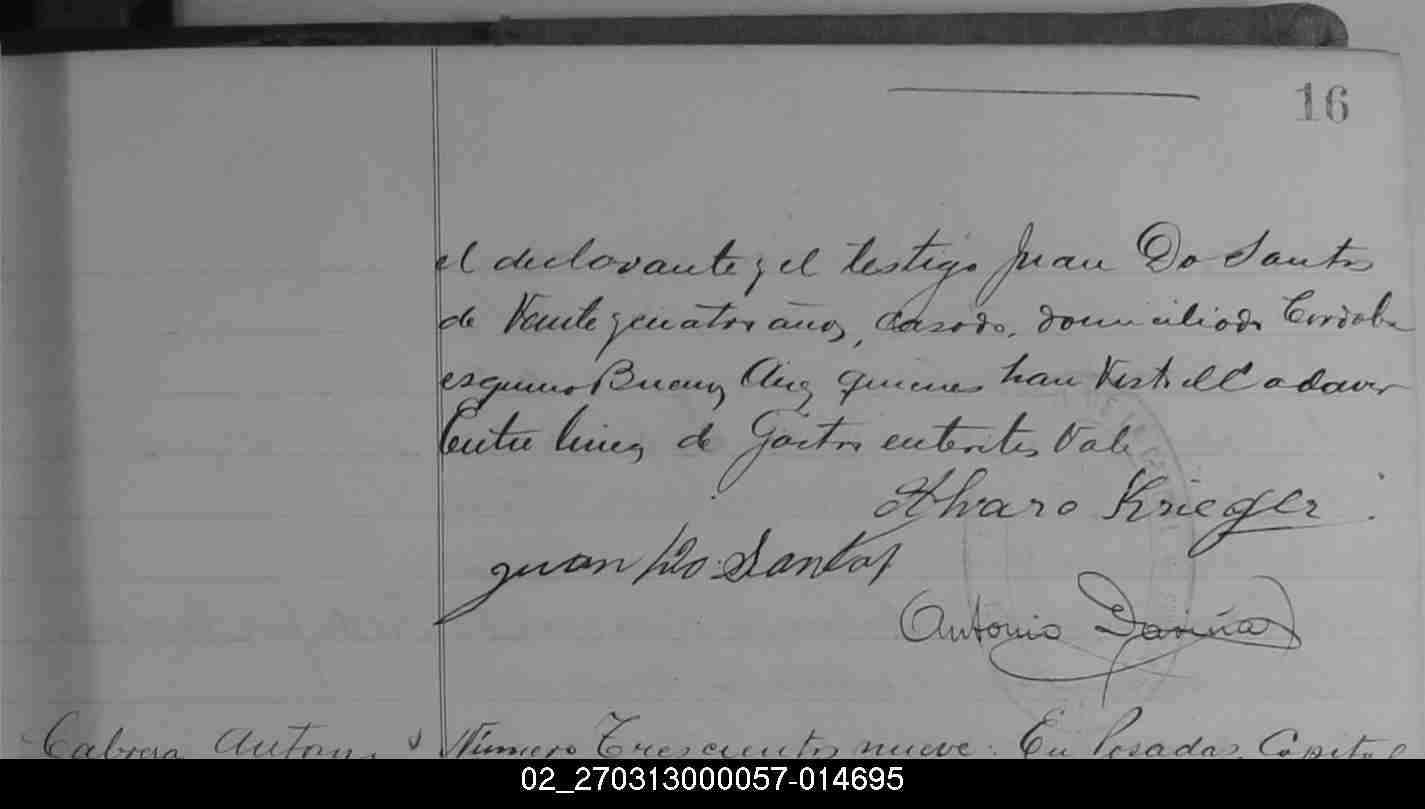 16
el declarante y el testigo Juan Do Santos
de Veinte y cuatro años, casado, domiciliado Cordoba
esquina Buenos Aires quienes han Visto el Cadaver
Entre lineas de Gastro enteritis Vale
Alvaro Krieger
Juan Do Santos
Antonio
Cabrera Antonio
Número Trescientos nueve: En Posadas, Capital
02_270313000057-014695